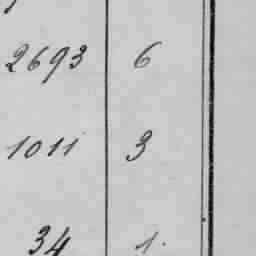 2693 6
1011 3
34 1.